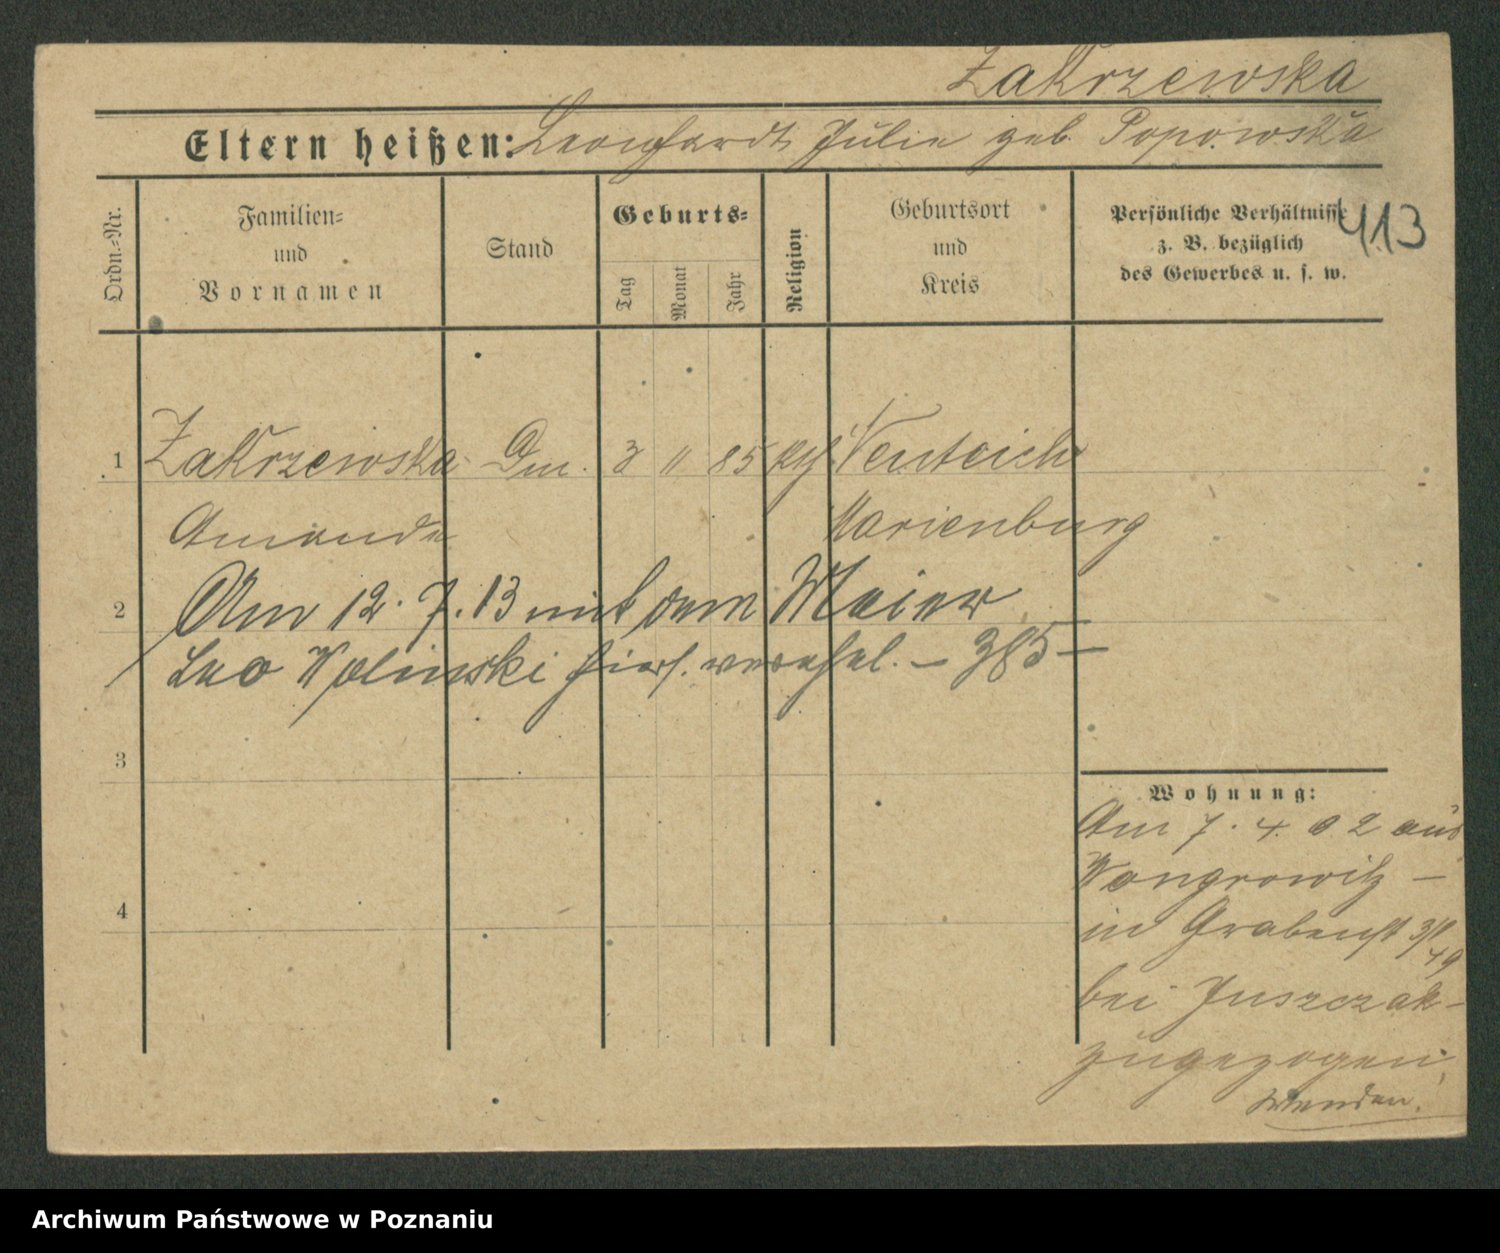 Zakrzewska
Eltern heißen: Leonhardt Julie geb. Popowska
Ordn.=Nr.
Familien=
und
Vornamen
Stand
Geburts=
Tag
Monat
Jahr
Religion
Geburtsort
und
Kreis
Persönliche Verhältnisse
z. B. bezüglich
des Gewerbes u. s. w.
413
1 Zakrzewska 3 11 85 kth Neuteich
Amanda Marienburg
2 Am 12. 7. 13 mit dem Maier
Leo Wolinski hiers. verehel. – 385 –
3
4
Wohnung:
Am 7. 4. 02 aus
Wongrowitz –
in Grabenst
bei Juszczak –
zugezogen
Wenden.
Archiwum Państwowe w Poznaniu